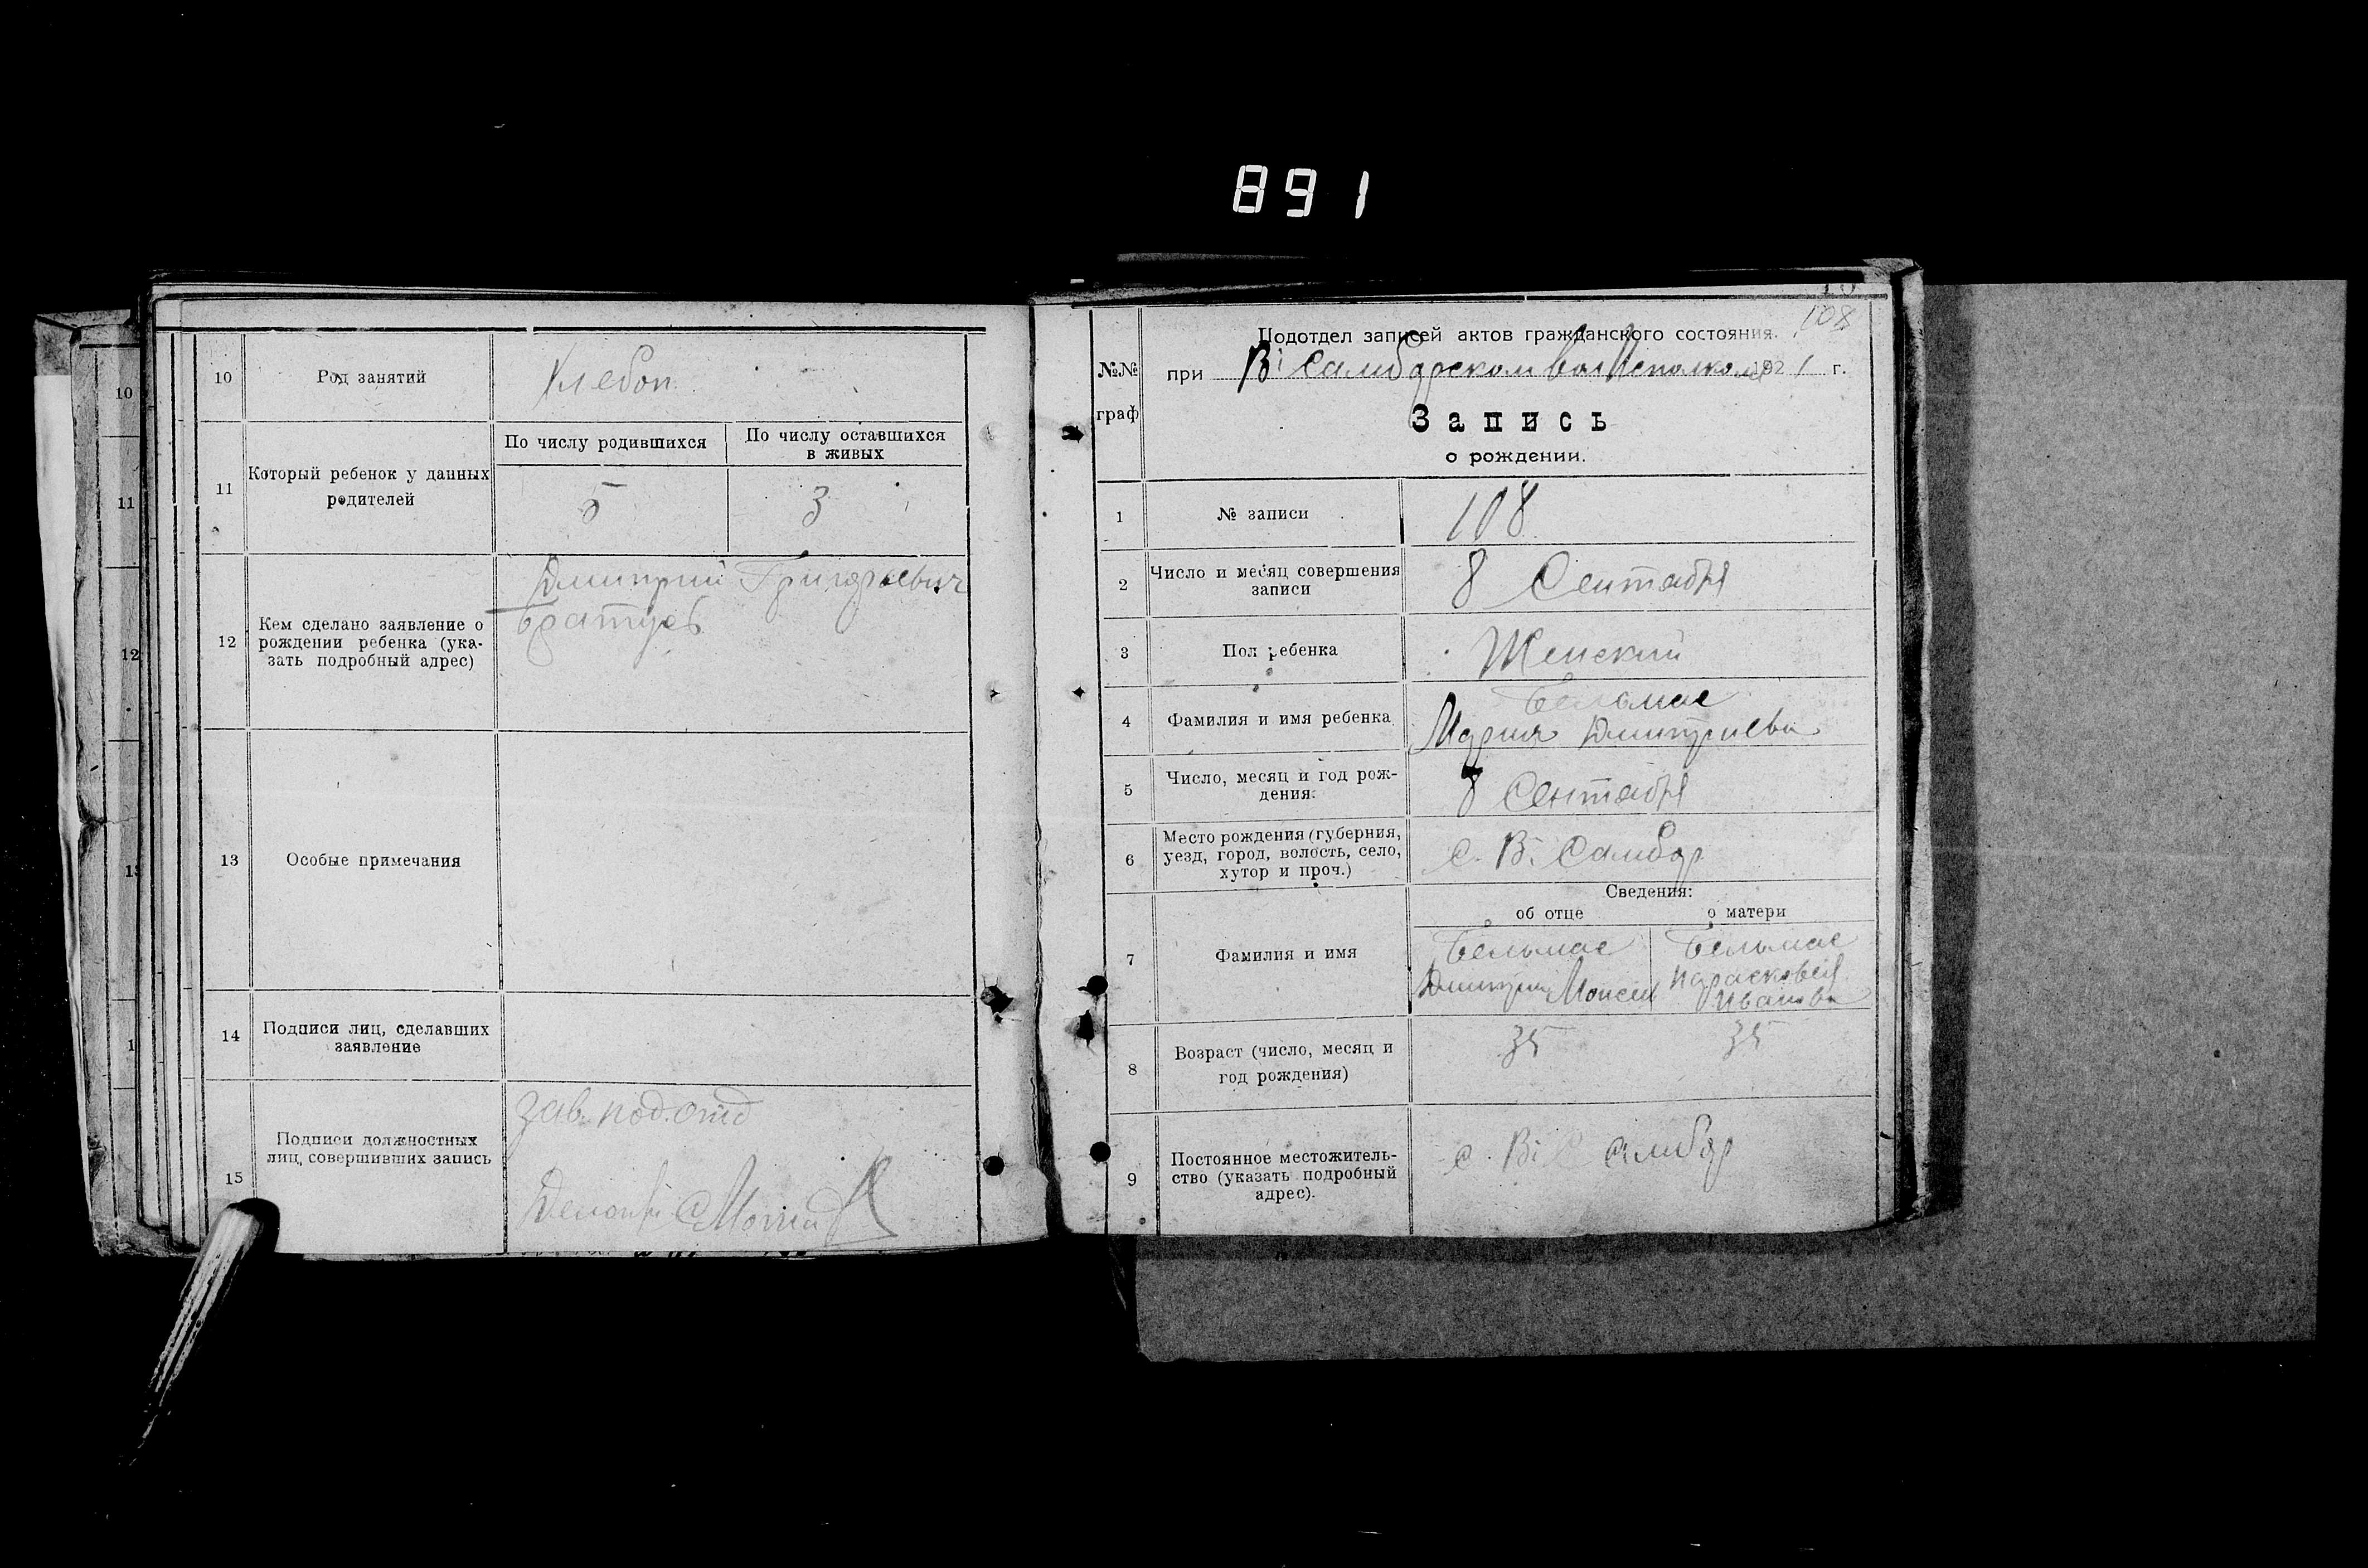 891
10
Род занятий
Хлебоп
11
Который ребенок у данных
родителей
По числу родившихся
По числу оставшихся
в живых
5
3
12
Кем сделано заявление о
рождении ребенка (ука-
зать подробный адрес)
Дмитрий Григорьевич
Братусь
13
Особые примечания
14
Подписи лиц, сделавших
заявление
15
Подписи должностных
лиц, совершивших запись
Зав. подотд
10
11
12
108
Подотдел записей актов гражданского состояния.
№№
граф
при В. Самборском волисполкоме 1921 г.
Запись
о рождении.
1
№ записи
108
2
Число и месяц совершения
записи
8 Сентября
3
Пол ребенка
Женский
4
Фамилия и имя ребенка
Бельмас
Мария Дмитриева
5
Число, месяц и год рож-
дения.
8 Сентября
6
Место рождения (губерния,
уезд, город, волость, село,
хутор и проч.)
С. В. Самбор
Сведения:
об отце
о матери
7
Фамилия и имя
Бельмас
Дмитрий Моисей
Бельмас
Парасковея
Иванова
8
Возраст (число, месяц и
год рождения)
35
35
9
Постоянное местожитель-
ство (указать подробный
адрес).
с. В. Самбор